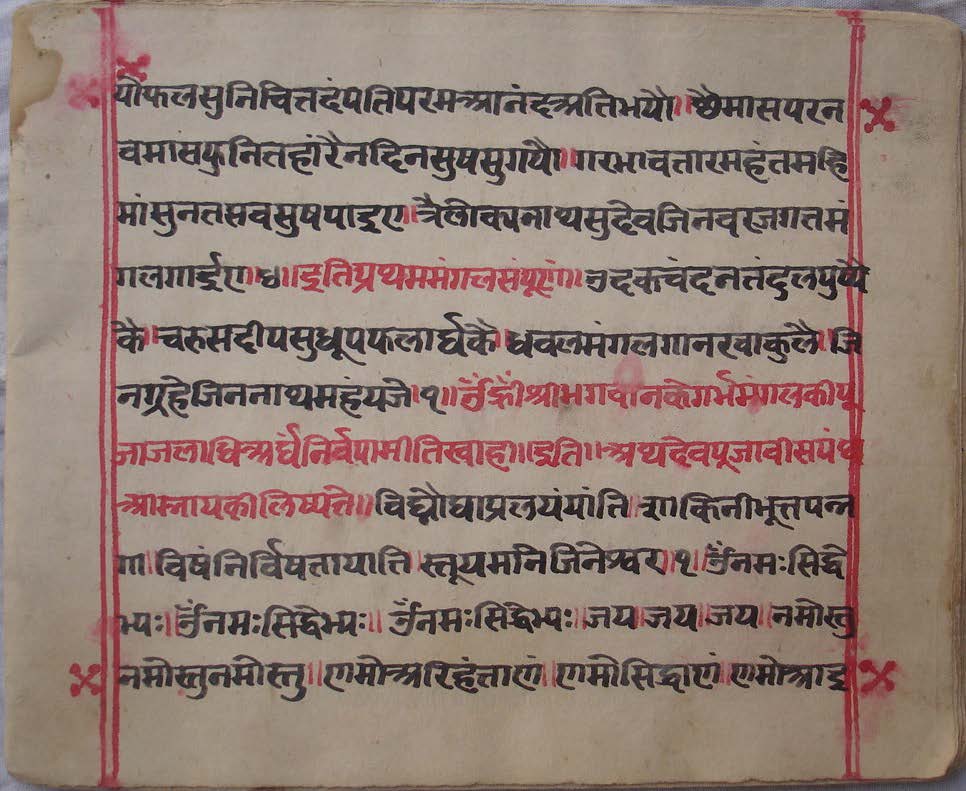 यौफलसुनिचित्तदंपतिपरमआनंदअतिभयौ॥छैमासपरन
वमासफुनितहांरैनदिनसुषसुगयौ॥गरभावतारमहंतमहि
मांसुनतसवसुषपाइए॥त्रैलोक्यनाथसुदेवजिनवरजगतमं
गलगाईए॥७॥इतिप्रथममंगलसंपूर्णं॥उदकचंदनतंदुलपुष्प
कै॥चरुसदीपसुधूपफलार्घकै॥धवलमंगलगानरवाकुलै॥जि
नगृहेजिननाथमहंयजे॥१॥ॐह्रींश्रीभगवानकेगर्भमंगलकीपू
जाजलाधिअर्घंनिर्वपामीतिस्वाहा॥इति॥अथदेवपूजावीसपंथ
आम्नायकीलिष्यते॥विघ्नौघाप्रलयंयांति॥शाकिनीभूतपन्न
गा॥विषंनिर्विषतायाति॥स्तूयमानेजिनेश्वर॥१॥ॐनमःसिद्धे
भ्यः॥ॐनमःसिद्धेभ्यः॥ॐनमःसिद्धेभ्यः॥जय॥जय॥जय॥नमोस्तु
नमोस्तुनमोस्तु॥णमोअरिहंताणं॥णमोसिद्धाणं॥णमोआइ